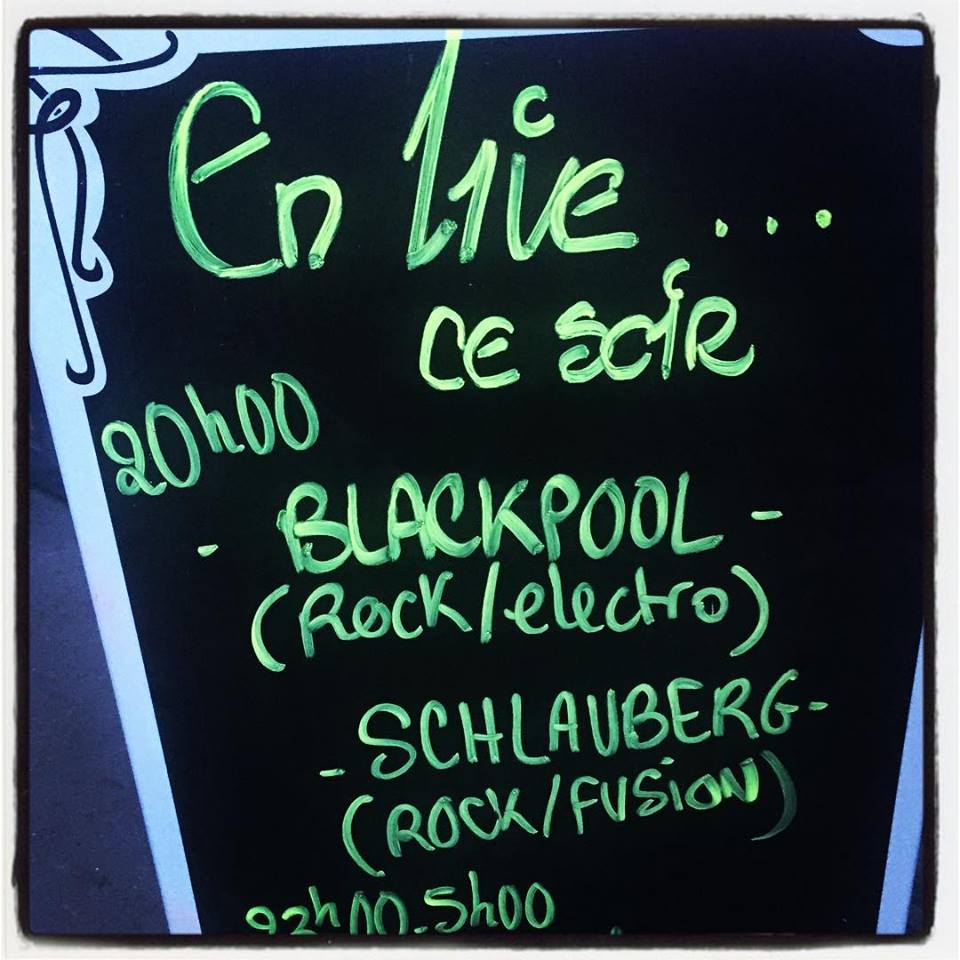 En Live ...
ce soir
20h00
- BLACKPOOL -
(Rock/electro)
- SCHLAUBERG -
(ROCK/FUSION)
23h00.5h00